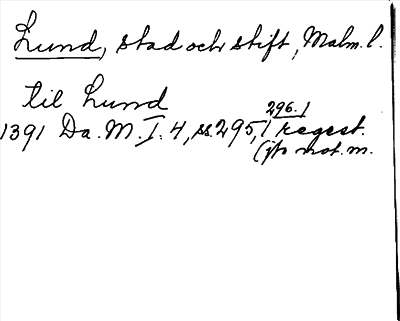 Lund, stad och stift, Malm. l.
til Lund
296.)
1391 Da. M. I. 4, ss. 295, regest.
(jfr not. m.